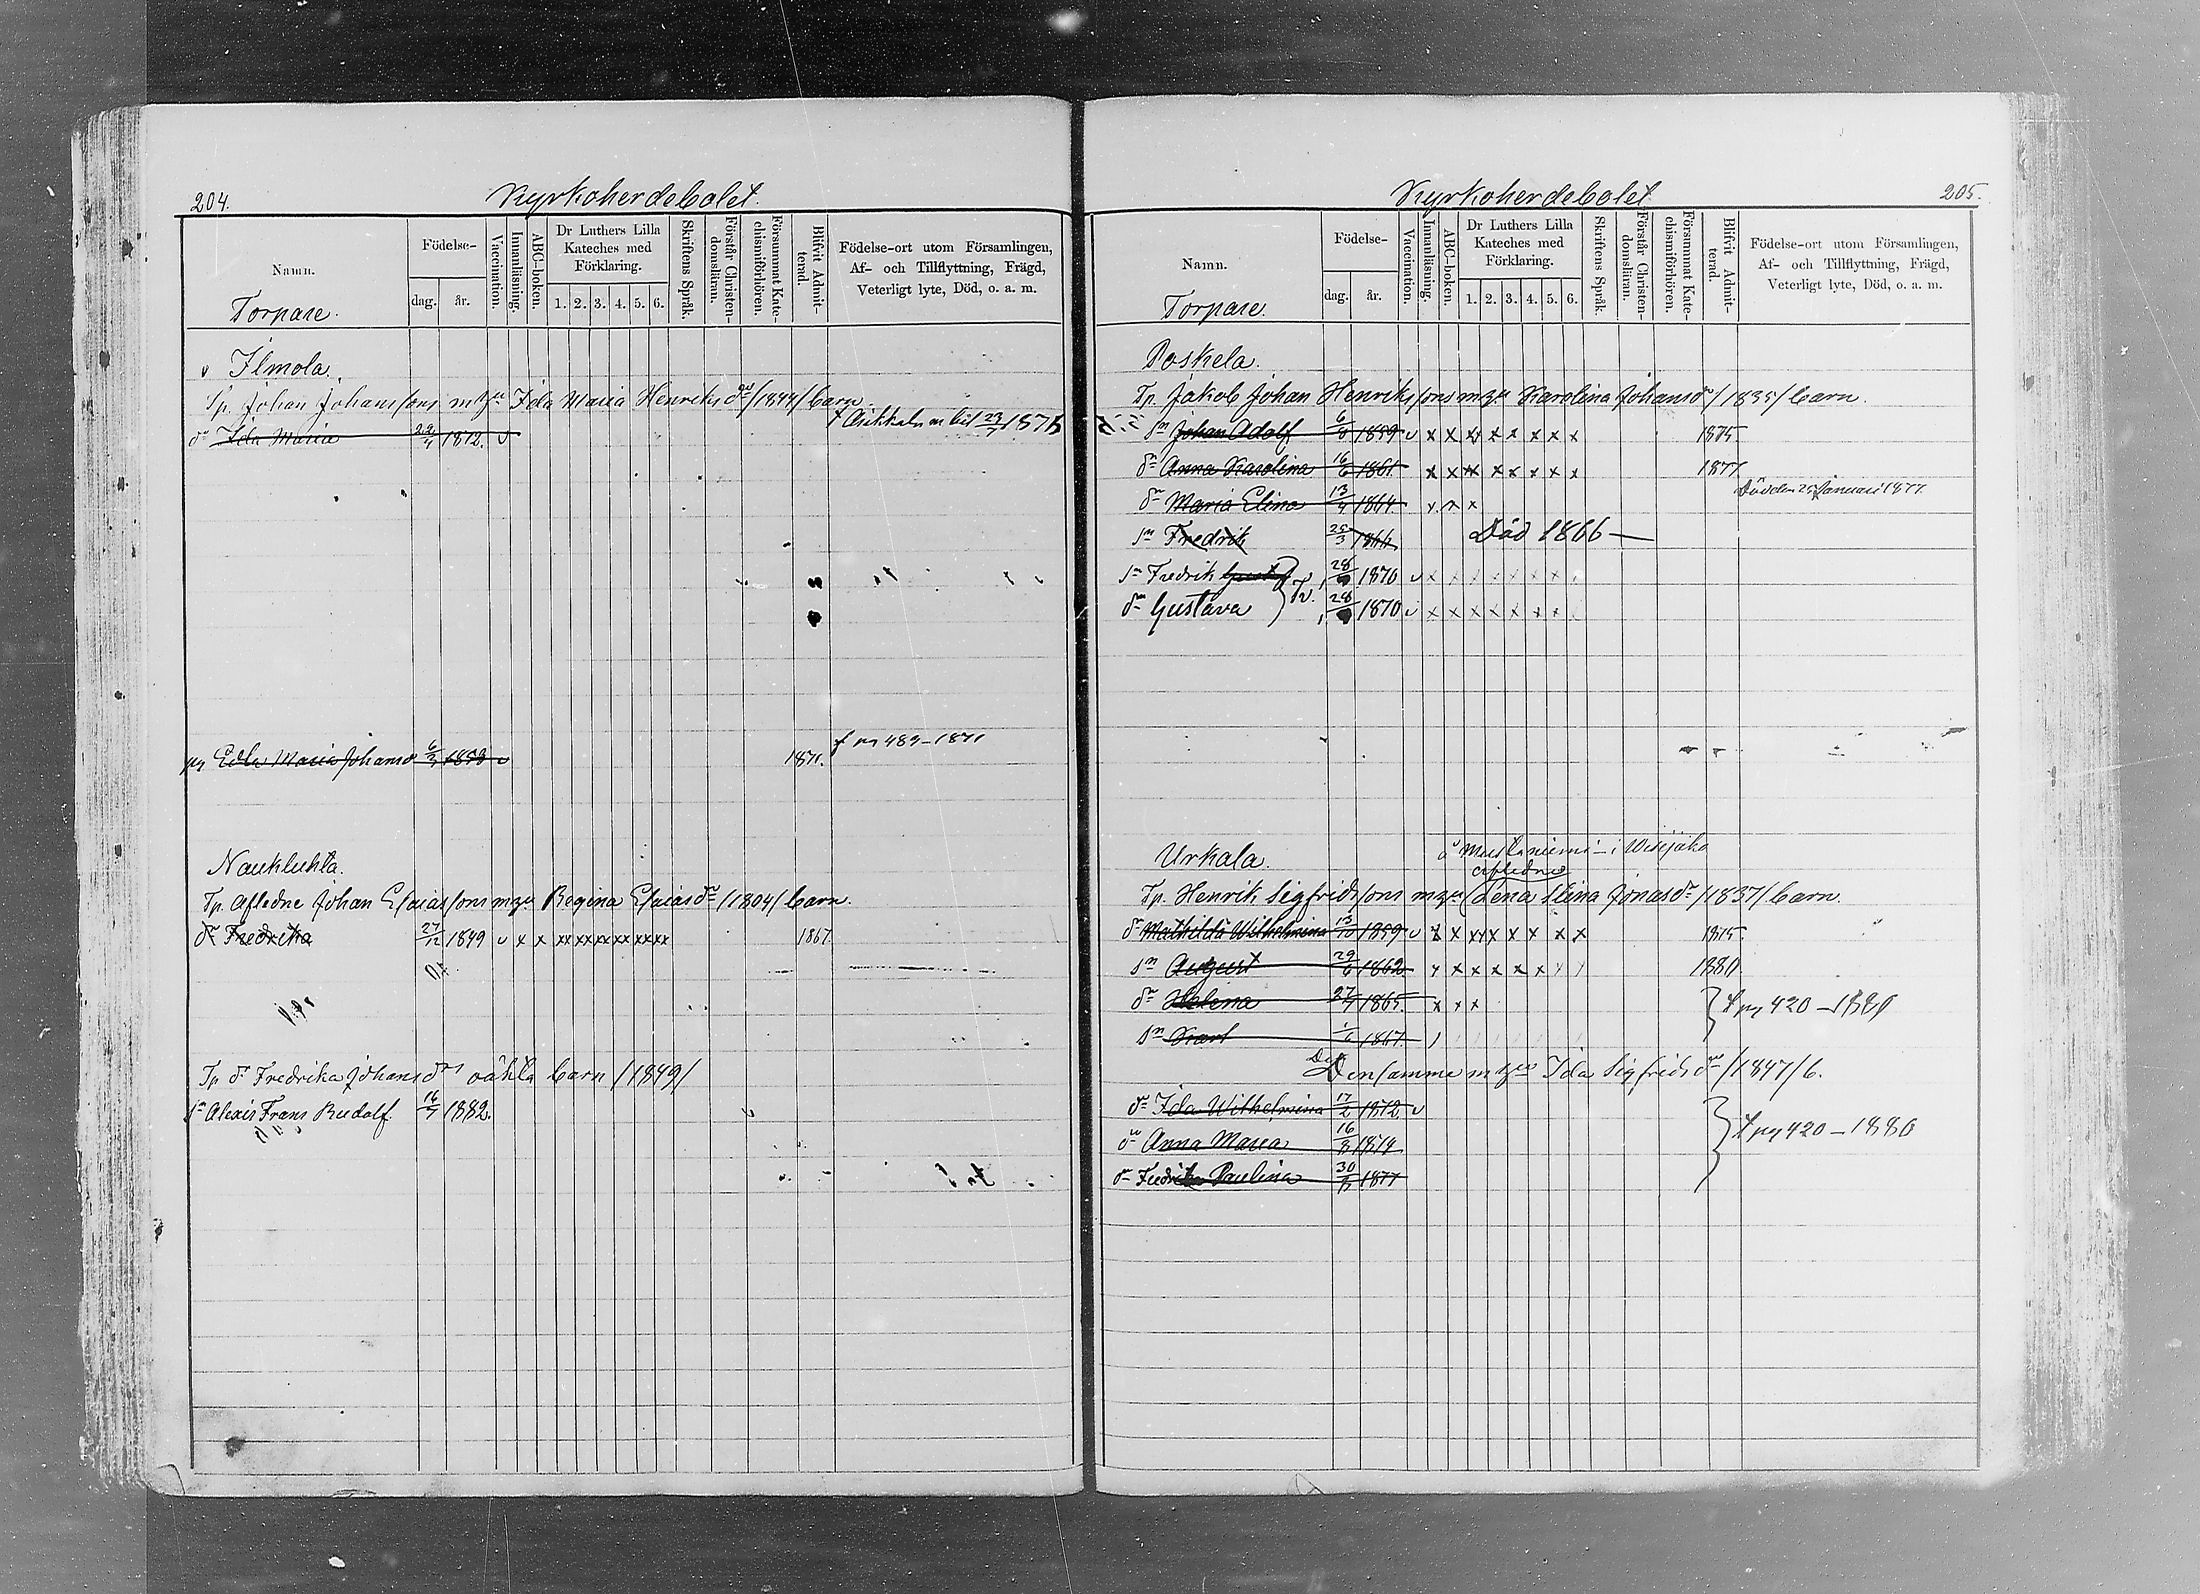 204.
Kyrkoherdebolet.
Namn.
Födelse-
dag.
år.
Vaccination.
Innanläsning.
ABC-boken.
Dr Luthers Lilla
Kateches med
Förklaring.
1. 2. 3. 4. 5. 6.
Skriftens Språk.
Förstår Christen-
domsläran.
Försummat Kate-
chismiförhören.
Blifvit Admit-
terad.
Födelse-ort utom Församlingen,
Af- och Tillflyttning, Frägd,
Veterligt lyte, Död, o. a. m.
Torpare.
v Ilmola.
Tp. Johan Johanssons m hu Ida Maria Henriksdr /1844/ barn.
dr Ida Maria 1872. v
Edla Maria Johansd 6/3 1853 v 1871. 483-1871
Naukluhta.
Tp. Afledne Johan Esaiassons m hu Regina Esaiasdr /1804/ barn.
dr Fredrika 27/12 1849 v x x xx xx xx xx xx xx 1867.
Tp dr Fredrika Johansdrs oäkta barn /1849/
sn Alexis Frans Rudolf 16/7 1882.
Kyrkoherdebolet
205.
Namn.
Födelse-
dag.
år.
Vaccination.
Innanläsning.
ABC-boken.
Dr Luthers Lilla
Kateches med
Förklaring.
1. 2. 3. 4. 5. 6.
Skriftens Språk.
Förstår Christen-
domsläran.
Försummat Kate-
chismiförhören.
Blifvit Admit-
terad.
Födelse-ort utom Församlingen,
Af- och Tillflyttning, Frägd,
Veterligt lyte, Död, o. a. m.
Torpare.
Poskela.
Tp. Jakob Johan Henrikssons m hu Karolina Johansdr /1835/ barn.
sn Johan Adolf 1859 v x x x x x x x x 1875.
dr Anna Karolina 16/6 1861 x x x x x x x x 1877.
dr Maria Elina 13/4 1864 Död den 25 Januari 1877.
sn Fredrik 25/3 1866 Död 1866
sn Fredrik 28 1870 v x x x x x x x
dr Gustava 28 1870 v x x x x x x x
Urkala.
å Mustaniemi i Wesijako
aflidne
Tp. Henrik Sigfridssons m hu Lena Stina Jonasdr /1837/ barn.
dr Mathilda Wilhelmina 13/10 1859 v x x x x x x x x 1875.
sn August 29/6 1862 x x x x x x 1880.
dr Helena 27/7 1865. x x x
sn Karl 1867.
420 - 1880
Densamme m hu Ida Sigfridsdr /1847/ b.
dr Ida Wilhelmina 17/2 1872 v
dr Anna Maria 16/3 1874
dr Fredrika Paulina 30 1877
420 - 1880